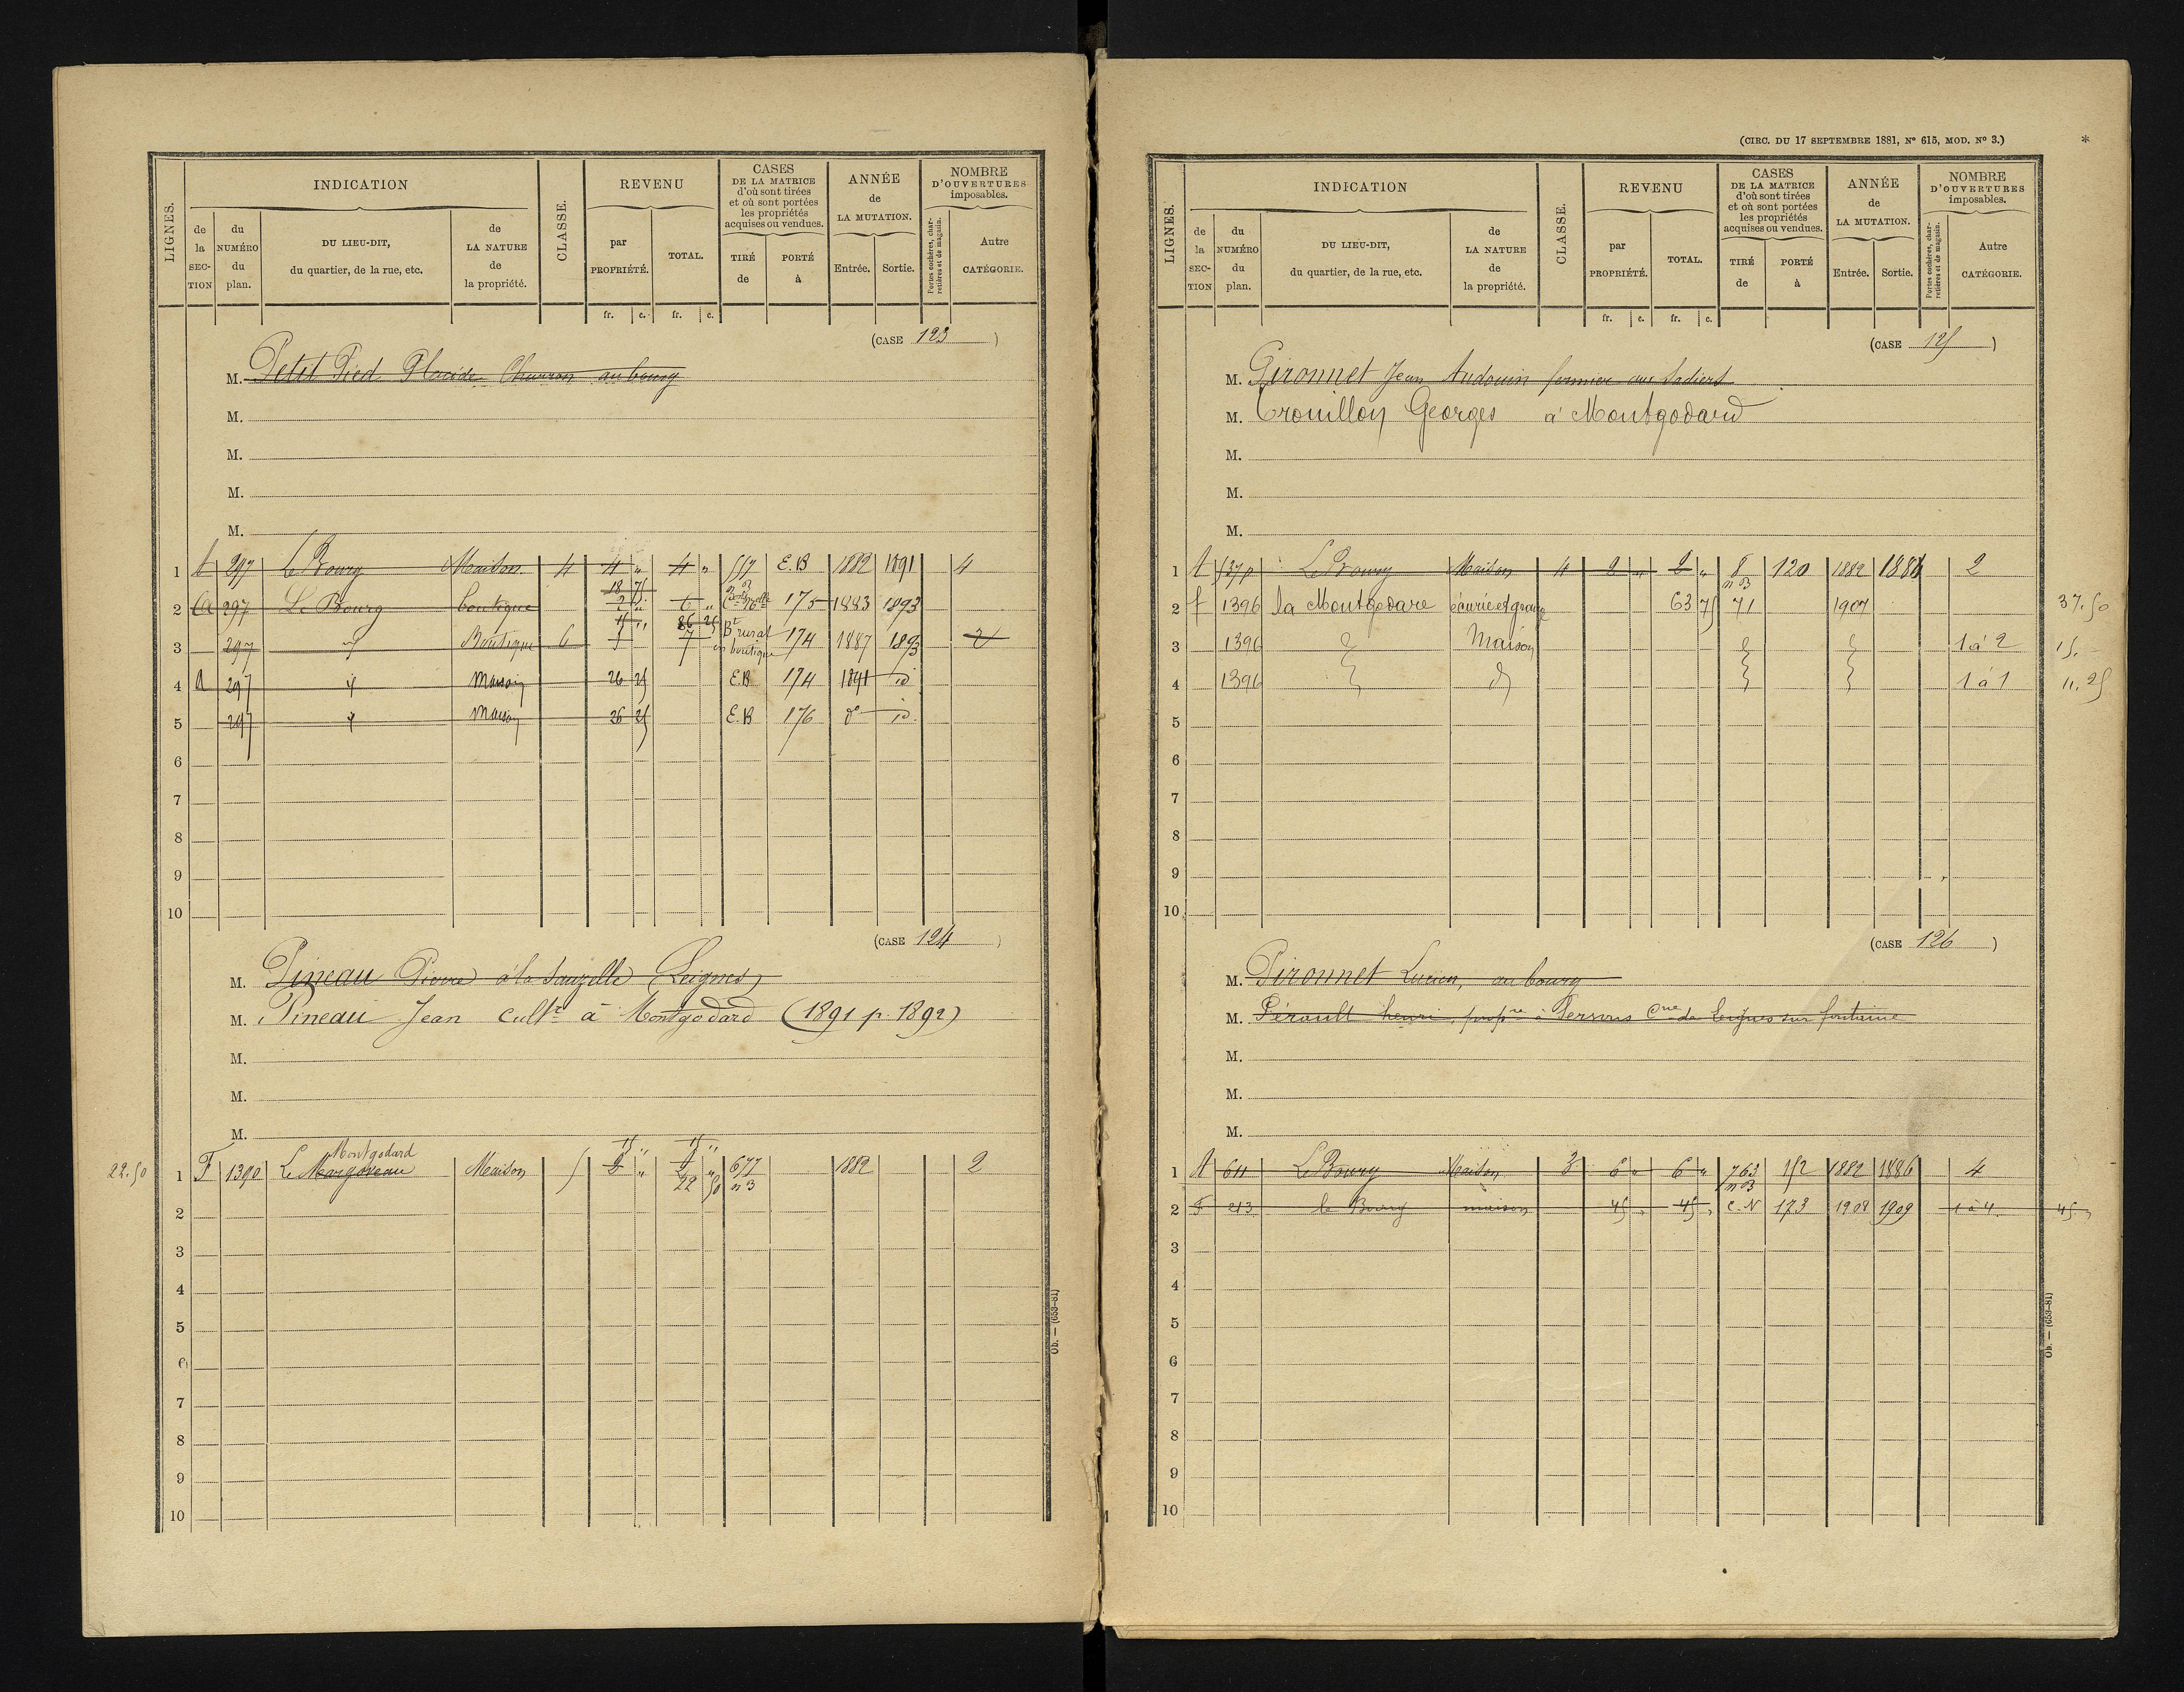 LIGNES.
INDICATION
de la SECTION
du NUMÉRO du plan.
DU LIEU-DIT, du quartier, de la rue, etc.
de LA NATURE de la propriété.
CLASSE.
REVENU
par PROPRIÉTÉ.
TOTAL.
CASES DE LA MATRICE d'où sont tirées et où sont portées les propriétés acquises ou vendues.
TIRÉ de
PORTÉ à
ANNÉE de LA MUTATION.
Entrée. Sortie.
NOMBRE D'OUVERTURES imposables.
Portes cochères, charretières et de magasin.
Autre CATÉGORIE.
fr. c. fr. c.
(CASE 123)
M. Petit Pied Placide Charron au bourg
M.
M.
M.
M.
1 A 297 Le Bourg Maison 4 4 " 4 " 557 E.B 1882 1891 4
18 75
2 A 297 Le Bourg boutique 2 " 6 " 175 1883 1893
15 " 86 25
3 297 d Boutique 6 5 7 Bt rural en boutique 174 1887 1893 2
4 A 297 d maison 26 25 E.B 174 1891 id
5 297 d maison 26 25 E.B 176 do id.
6
7
8
9
10
(CASE 124)
M. Pineau Pierre à la Sauzelle (Leignes)
M. Pineau Jean cultr à Montgodard (1891 p. 1892)
M.
M.
M.
Montgodard 15 " 15 "
22.50 1 F 1390 Le Maison 5 9 " 9 " 677 1882 2
22 50 n 3
2
3
4
5
6
7
8
9
10
Ob. — (653-81)
(CIRC. DU 17 SEPTEMBRE 1881, N° 615, MOD. N° 3.)
*
LIGNES.
INDICATION
de la SECTION
du NUMÉRO du plan.
DU LIEU-DIT, du quartier, de la rue, etc.
de LA NATURE de la propriété.
CLASSE.
REVENU
par PROPRIÉTÉ.
TOTAL.
CASES DE LA MATRICE d'où sont tirées et où sont portées les propriétés acquises ou vendues.
TIRÉ de
PORTÉ à
ANNÉE de LA MUTATION.
Entrée. Sortie.
NOMBRE D'OUVERTURES imposables.
Portes cochères, charretières et de magasin.
Autre CATÉGORIE.
fr. c. fr. c.
(CASE 125)
M. Pironnet Jean Audouin fermier aux
M. Trouillon Georges à Montgodard
M.
M.
M.
1 A 537 p Le Bourg Maison 4 2 " 2 " 8 n 3 120 1882 1886 2
2 f 1396 la Montgodare écurie et grange 63 75 71 1907 37.50
3 1396 d Maison d d 1 à 2 15. -
4 1396 d d d d 1 à 1 11.25
5
6
7
8
9
10
(CASE 126)
M. Pironnet Lucien, au bourg
M. Pérault henri, propre à Cne de Leignes sur fontaine
M.
M.
M.
1 A 611 Le Bourg Maison 3 6 " 6 " 763 n 3 152 1882 1886 4
2 F 213 le Bourg maison 45 " 45 " C.N 173 1908 1909 1 à 4 45 "
3
4
5
6
7
8
9
10
Ob. — (653-81)